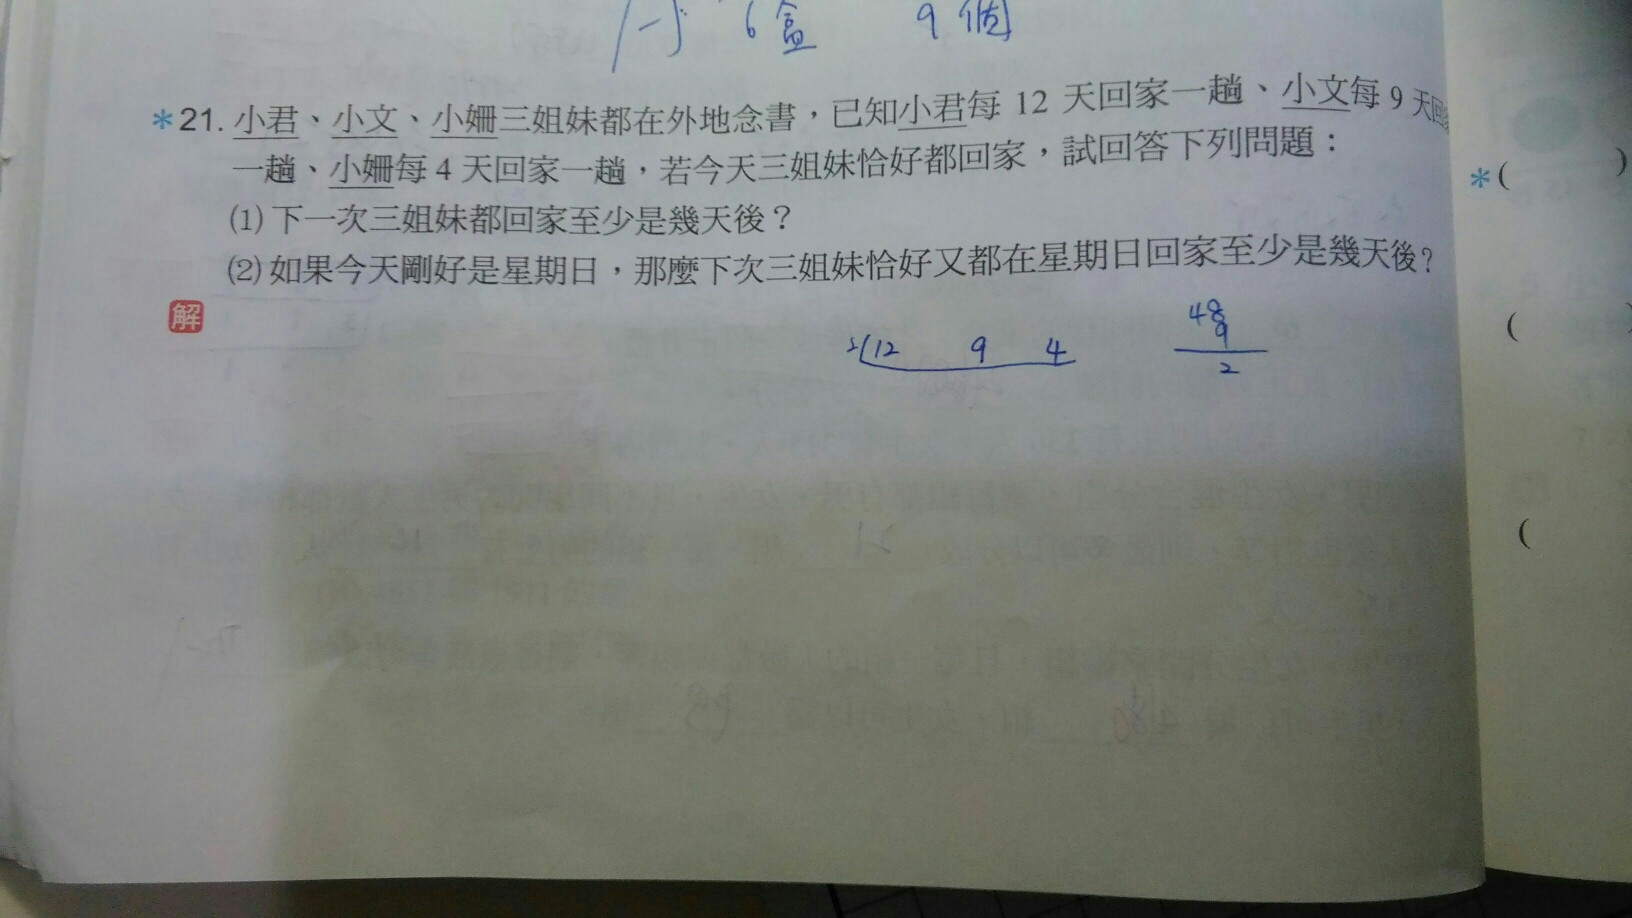 6盒 9個
*21. 小君、小文、小姍三姐妹都在外地念書，已知小君每 12 天回家一趟、小文每 9 天回家
一趟、小姍每 4 天回家一趟，若今天三姐妹恰好都回家，試回答下列問題：
(1) 下一次三姐妹都回家至少是幾天後？
(2) 如果今天剛好是星期日，那麼下次三姐妹恰好又都在星期日回家至少是幾天後？
解
2 12 9 4
48
9
2
*( )
(
(